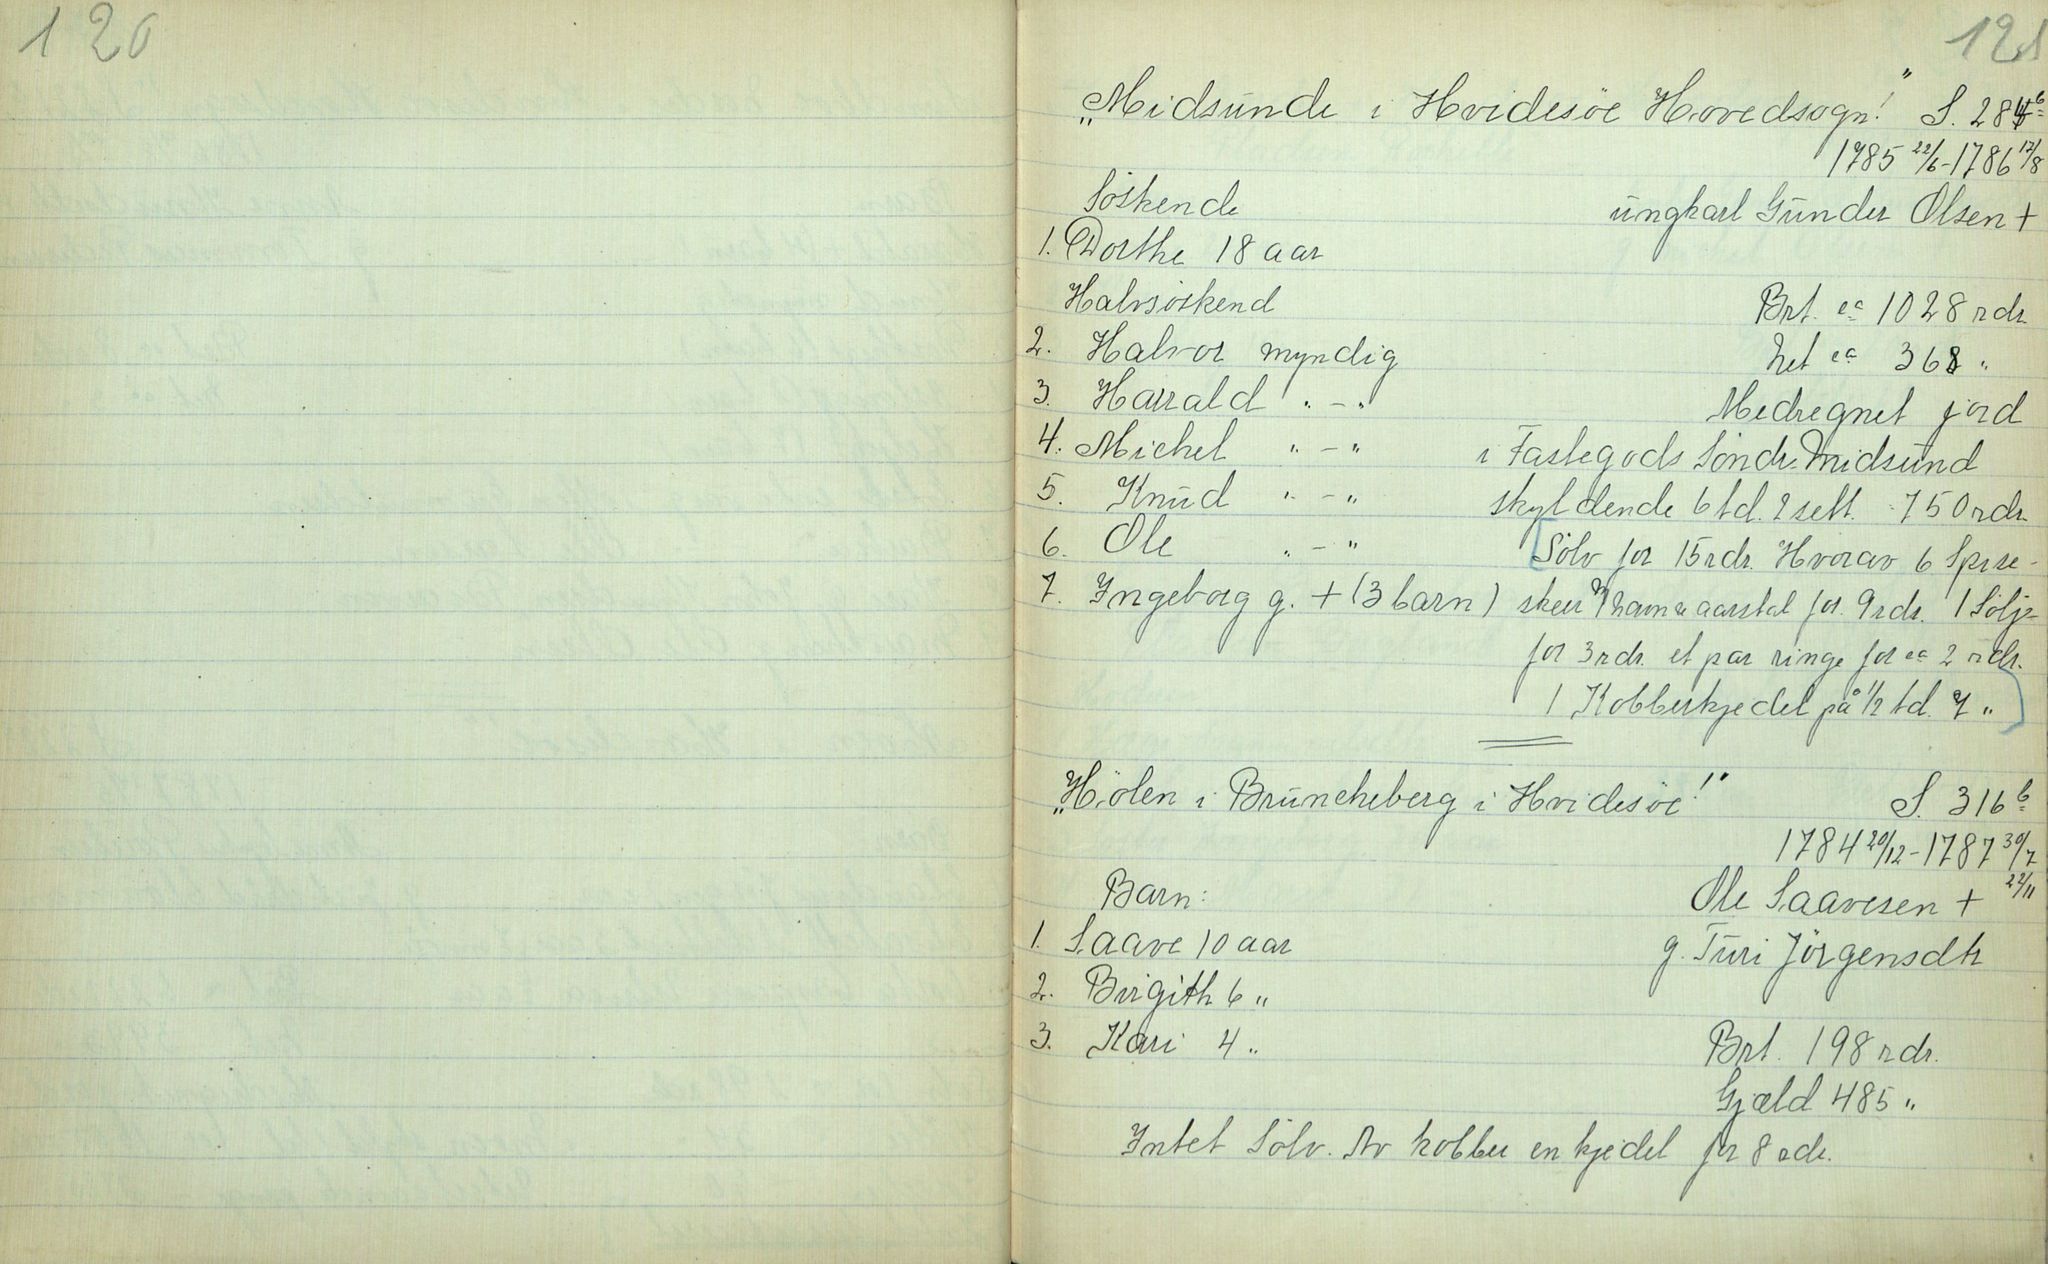 120
121
„Midsunde i Hvidesöe Hovedsogn!" S. 284 b
1785 22/6 - 1786 17/8
Söskende ungkarl Gunder Olsen +
1. Dorthe 18 aar
Halvsöskend Brt. ca 1028 rdr.
2. Halvor myndig Net ca 368 "
3. Harrald " - " Medregnet jord
4. Michel " - " i Fastegods Söndr. Midsund
5. Knud " - " skyldende 6 td. 2 sett. 750 rdr.
6. Ole " - " [Sölv for 15 rdr. Hvorav 6 Spise-
7. Ingeborg g. + (3 barn) skeer m/ navn & aarstal for 9 rdr. 1 Sölje
for 3 rdr. et par ringe for ca 2 rdr.
1 Kobberkjedel på 1/2 td. 7 "]
„Hölen i Bruncheberg i Hvidesöe!" S. 316 b
1784 20/12 - 1787 30/7
Barn: Ole Saavesen + 22/11
1. Saave 10 aar g. Turi Jörgensdtr
2. Birgith 6 "
3. Kari 4 " Brt. 198 rdr.
Gjæld 485 "
Intet Sölv. Av kobber en kjedel for 8 rdr.